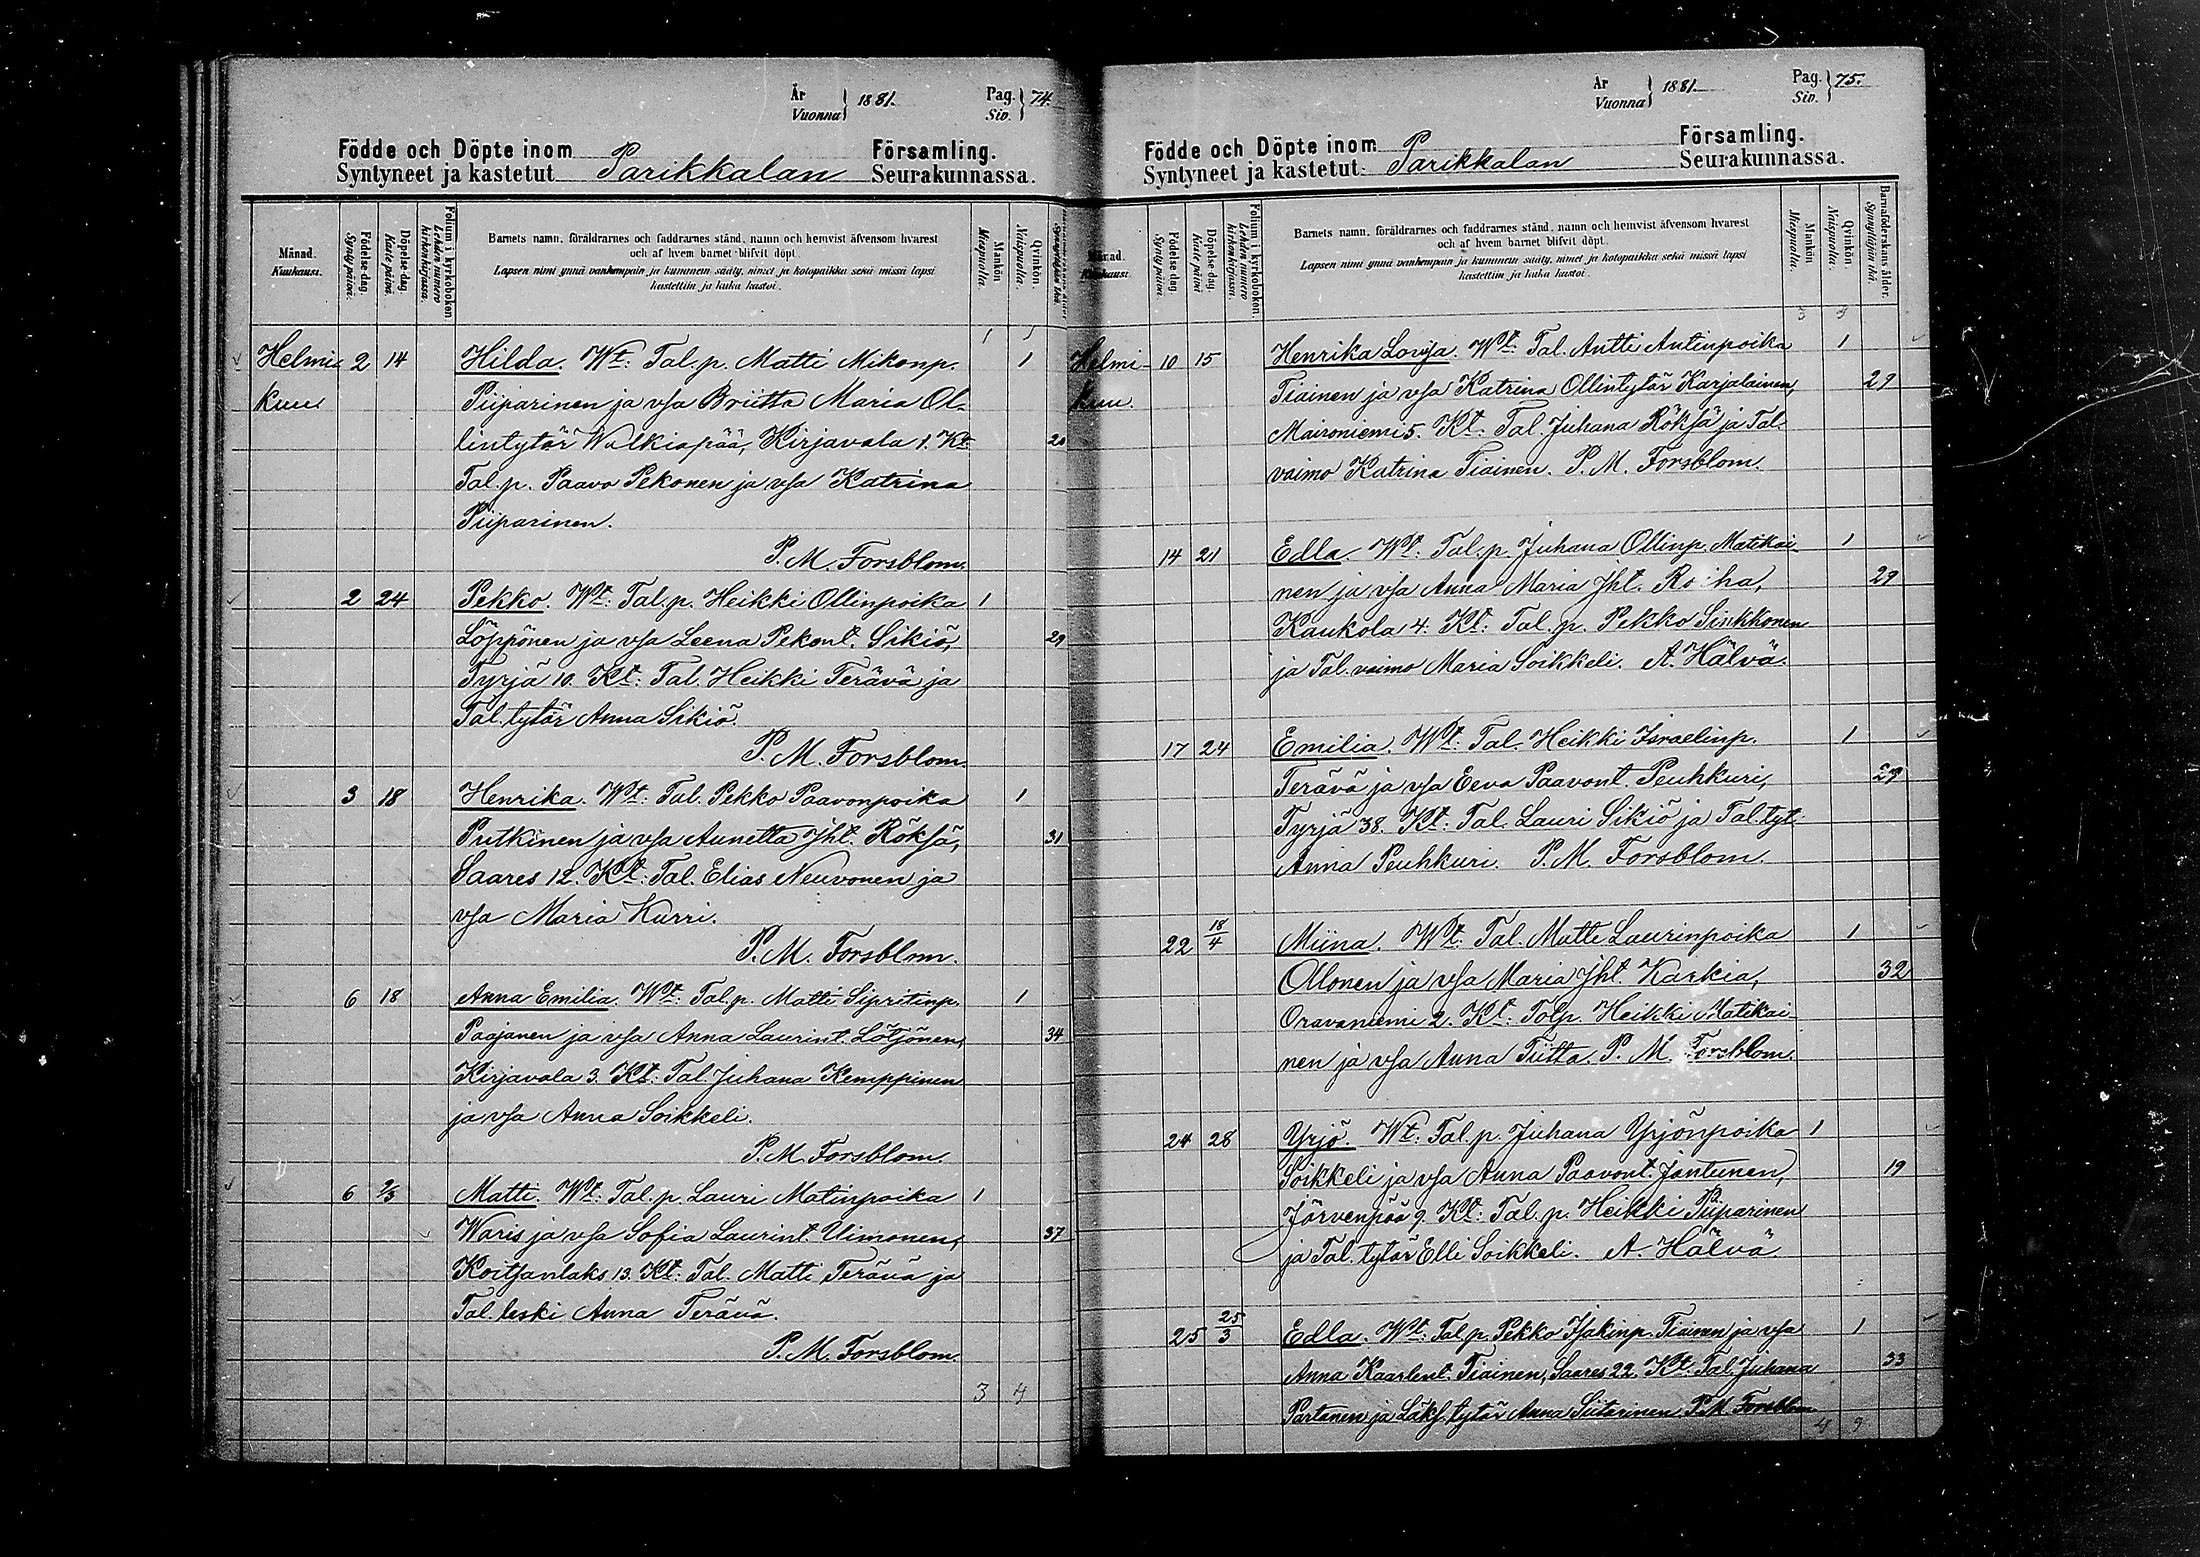 År
Vuonna } 1881.
Pag.
Siv. } 74.
Födde och Döpte inom Församling.
Syntyneet ja kastetut Parikkalan Seurakunnassa.
Månad.
Kuukausi.
Födelse-dag.
Synty päivä.
Döpelse-dag.
Kaste päivä.
Folium i kyrkoboken.
Lehden numero kirkonkirjassa.
Barnets namn, föräldrarnes och faddrarnes stånd, namn och hemvist äfvensom hvarest
och af hvem barnet blifvit döpt.
Lapsen nimi ynnä vanhempain ja kummein sääty, nimet ja kotopaikka sekä missä lapsi
kastettiin ja kuka kastoi.
Mankön.
Miespuolia.
Qvinkön.
Naispuolia.
1 1
Helmi- 2 14 Hilda. Wt: Tal. p. Matti Mikonp. 1
kuu. Piiparinen ja vsa Briitta Maria Ol-
lintytär Walkiapää, Kirjavala 1. Kt: 20
Tal. p. Paavo Pekonen ja vsa Katrina
Piiparinen.
P. M. Forsblom.
2 24 Pekko. Wt: Tal. p. Heikki Ollinpoika 1
Löppönen ja vsa Leena Pekont. Sikiö, 29
Tyrjä 10. Kt: Tal. Heikki Terävä ja
Tal. tytär Anna Sikiö.
P. M. Forsblom.
3 18 Henrika. Wt: Tal. Pekko Paavonpoika 1
Putkinen ja vsa Aunetta Jht. Röksä, 31
Saares 12. Kt: Tal. Elias Neuvonen ja
vsa Maria Kurri.
P. M. Forsblom.
6 18 Anna Emilia. Wt: Tal. p. Matti Sipritinp. 1
Paajanen ja vsa Anna Laurint. Lötjönen, 34
Kirjavala 3. Kt: Tal. Juhana Kemppinen
ja vsa Anna Soikkeli.
P. M. Forsblom.
6 2/3 Matti. Wt: Tal. p. Lauri Matinpoika 1
Waris ja vsa Sofia Laurint. Uimonen, 37
Koitsanlaks 13. Kt: Tal. Matti Terävä ja
Tal. leski Anna Terävä.
P. M. Forsblom.
3 4
År
Vuonna } 1881.
Pag.
Siv. } 75.
Födde och Döpte inom Församling.
Syntyneet ja kastetut: Parikkalan Seurakunnassa.
Månad.
Kuukausi.
Födelse-dag.
Synty päivä.
Döpelse-dag.
Kaste päivä
Folium i kyrkoboken.
Lehden numero kirkonkirjassa.
Barnets namn, föräldrarnes och faddrarnes stånd, namn och hemvist äfvensom hvarest
och af hvem barnet blifvit döpt.
Lapsen nimi ynnä vanhempain ja kummein sääty, nimet ja kotopaikka sekä missä lapsi
kastettiin ja kuka kastoi.
Mankön.
Miespuolia.
Qvinkön.
Naispuolia.
Barnaföderskans ålder.
Synnyttäjän ikä.
3 4
Helmi- 10 15 Henrika Lovisa. Wt: Tal. Antti Antinpoika 1
kuu. Tiainen ja vsa Katrina Ollintytär Karjalainen, 29
Maironiemi 5. Kt: Tal. Juhana Röksä ja Tal.
vaimo Katrina Tiainen. P. M. Forsblom.
14 21 Edla. Wt: Tal. p. Juhana Ollinp. Matikai- 1
nen ja vsa Anna Maria Jht. Roiha, 29
Kaukola 4. Kt: Tal. p. Pekko Sinkkonen
ja Tal. vaimo Maria Soikkeli. A. Hälvä.
17 24 Emilia. Wt: Tal. Heikki Israelinp. 1
Terävä ja vsa Eeva Paavont. Peuhkuri, 29
Tyrjä 38. Kt: Tal. Lauri Sikiö ja Tal. tyt.
Anna Peuhkuri. P. M. Forsblom.
22 18/4 Miina. Wt: Tal. Matti Laurinpoika 1
Ollonen ja vsa Maria Jht. Karkia, 32
Oravaniemi 2. Kt: Tal p. Heikki Matikai-
nen ja vsa Anna Tiitta. P. M. Forsblom.
24 28 Yrjö. Wt: Tal. p. Juhana Yrjönpoika 1
Soikkeli ja vsa Anna Paavont. Jantunen, 19
Järvenpää 9. Kt: Tal. p. Heikki Piiparinen
ja Tal. tytär Elli Soikkeli. A. Hälvä
25 25/3 Edla. Wt: Tal p. Pekko Isakinp. Tiainen ja vsa 1
Anna Kaarlent. Tiainen, Saares 22. Kt: Tal. Juhana 33
Partanen ja Läks. tytär Anna Siitarinen. P. M. Forsblom
4 9